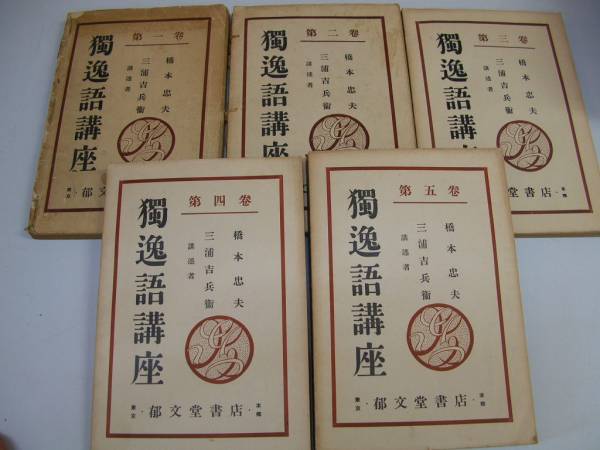 第一卷
橋本忠夫
三浦吉兵衞
講述者
獨逸語講座
東京・郁文堂書店・本鄕
第二卷
橋本忠夫
三浦吉兵衞
講述者
獨逸語講座
東京・郁文堂書店・本鄕
第三卷
橋本忠夫
三浦吉兵衞
講述者
獨逸語講座
東京・郁文堂書店・本鄕
第四卷
橋本忠夫
三浦吉兵衞
講述者
獨逸語講座
東京・郁文堂書店・本鄕
第五卷
橋本忠夫
三浦吉兵衞
講述者
獨逸語講座
東京・郁文堂書店・本鄕